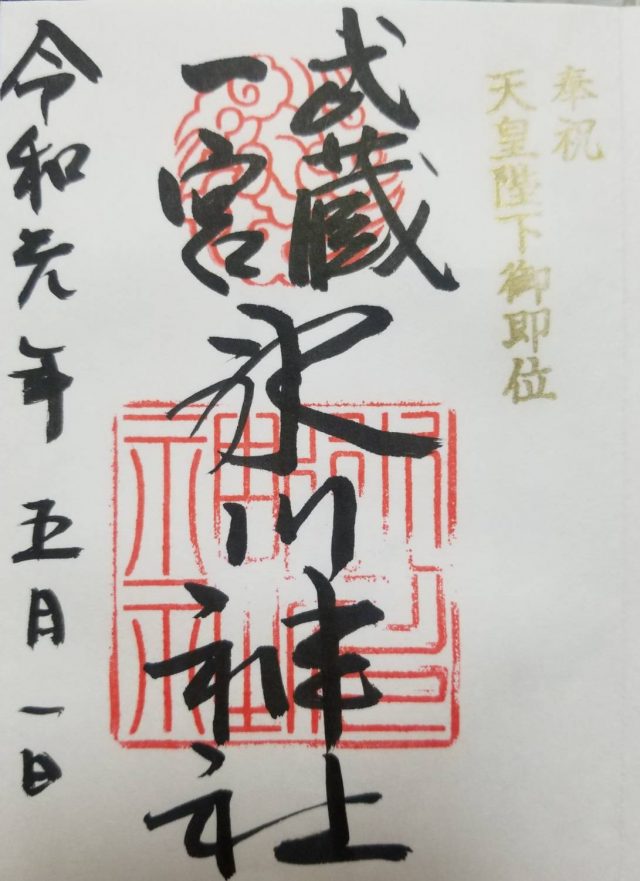 奉祝
天皇陛下御即位
武蔵
一宮
氷川神社
令和元年五月一日